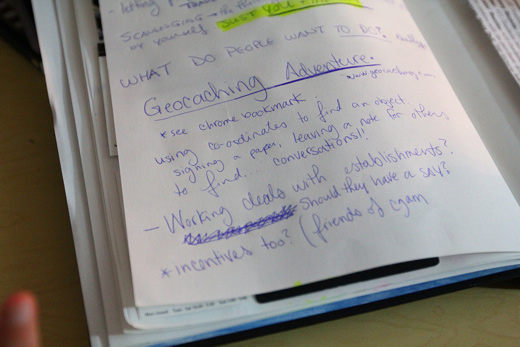 - letting
SCAVENGING -
by yourself.
JUST YOU
WHAT DO PEOPLE WANT TO DO? really
Geocaching Adventure.
www.geocaching.com
*see chrome bookmark
using co-ordinates to find an object,
signing a paper, leaving a note for others
to find... conversations!!
- Working deals with establishments?
Should they have a say?
*incentives too? (friends of cgam